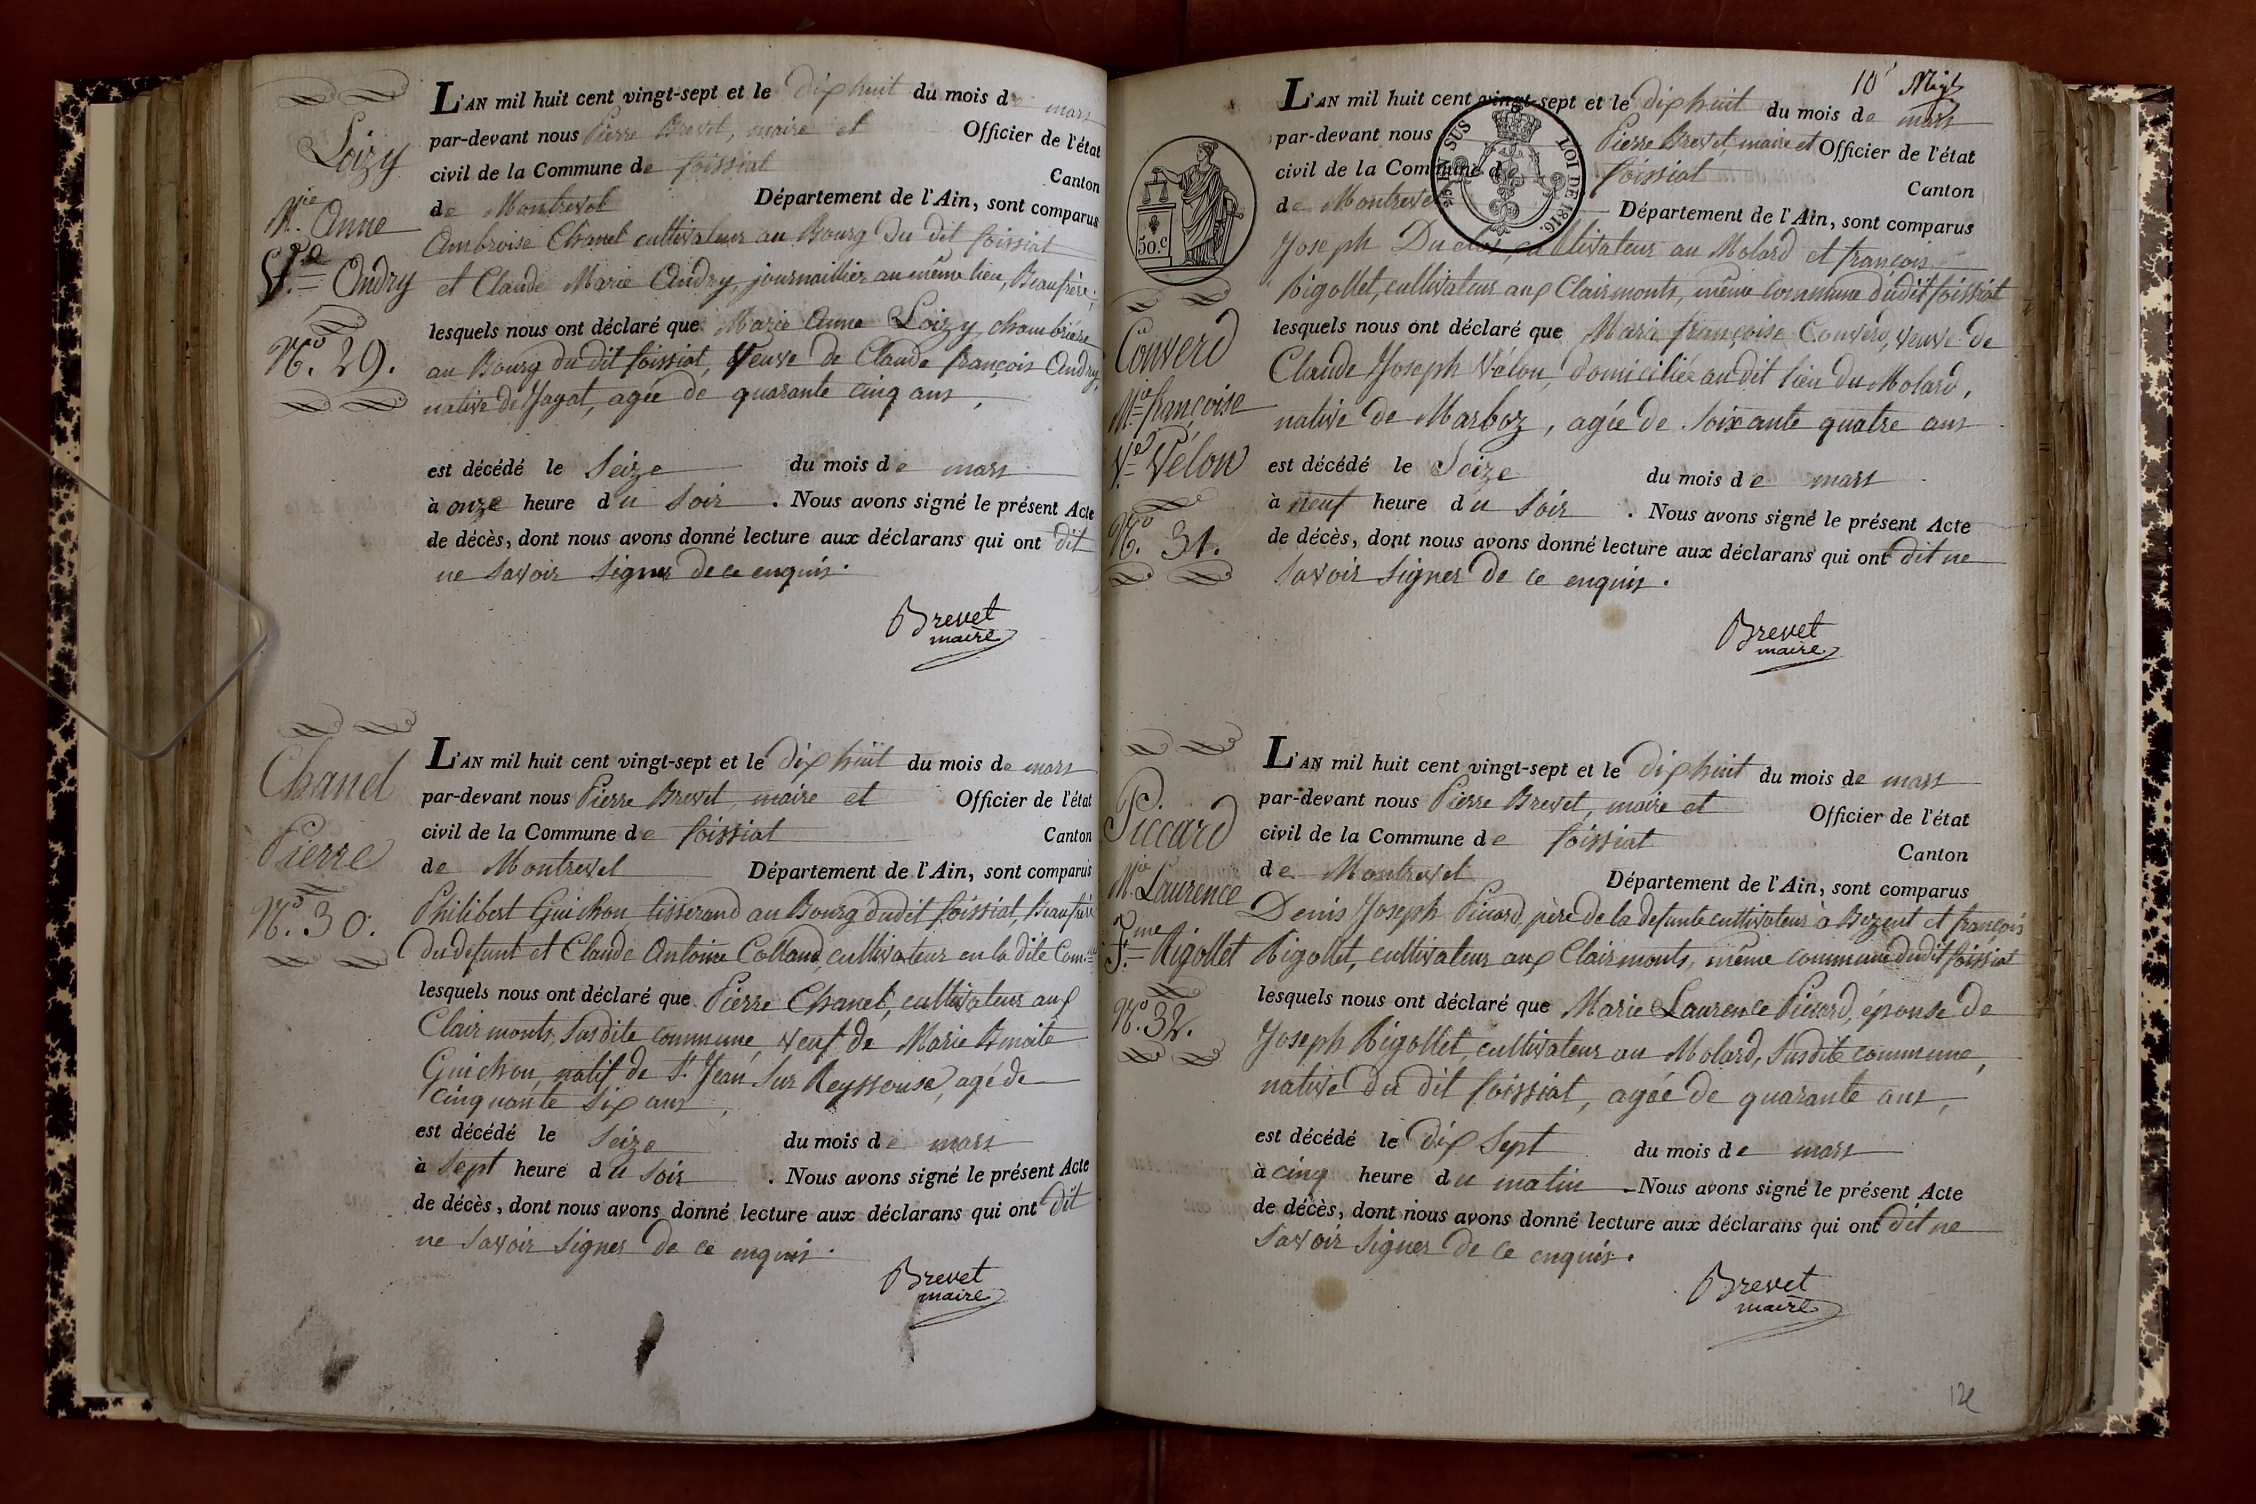 Loizy
Mie. Anne
Ve. Ondry
No. 29.
L'AN mil huit cent vingt-sept et le dix huit du mois de mars
par-devant nous Pierre Brevet, maire et Officier de l'état
civil de la Commune de foissiat Canton
de Montrevel Département de l'Ain, sont comparus
Ambroise Chanel cultivateur au Bourg du dit foissiat
et Claude Marie Ondry, journaillier au même lieu, Beaufrère;
lesquels nous ont déclaré que Marie Anne Loizy, chambrière
au Bourg du dit foissiat, Veuve de Claude françois Ondry,
native de Jayat, agée de quarante cinq ans,
est décédé le Seize du mois de mars
à onze heure du Soir. Nous avons signé le présent Acte
de décès, dont nous avons donné lecture aux déclarans qui ont dit
ne Savoir Signer de ce enquis.
Brevet
maire
Chanel
Pierre
No. 30.
L'AN mil huit cent vingt-sept et le dix huit du mois de mars
par-devant nous Pierre Brevet, maire et Officier de l'état
civil de la Commune de foissiat Canton
de Montrevel Département de l'Ain, sont comparus
Philibert Guichon tisserand au Bourg dudit foissiat, Beaufrère
du defunt et Claude Antoine Colland, cultivateur en la dite Comne
lesquels nous ont déclaré que Pierre Chanel, cultivateur aux
Clairmonts, Susdite commune, veuf de Marie Benoite
Guichon, natif de St. Jean Sur Reyssouse, agé de
cinquante Six ans,
est décédé le Seize du mois de mars
à Sept heure du Soir. Nous avons signé le présent Acte
de décès, dont nous avons donné lecture aux déclarans qui ont dit
ne Savoir Signer de ce enquis.
Brevet
maire
10e
50.c
EN SUS
LOI DE 1816.
Converd
Mie françoise
Ve. Vélon
No. 31.
L'AN mil huit cent vingt-sept et le dix huit du mois de mars
par-devant nous Pierre Brevet, maire et Officier de l'état
civil de la Commune de foissiat Canton
de Montrevel Département de l'Ain, sont comparus
Joseph Duclos, cultivateur au Molard et françois
Rigollet, cultivateur aux Clairmonts, même commune dudit foissiat
lesquels nous ont déclaré que Marie françoise Converd, veuve de
Claude Joseph Vélon, domiciliée audit lieu du Molard,
native de Marboz, agée de Soixante quatre ans
est décédé le Seize du mois de mars
à neuf heure du Soir. Nous avons signé le présent Acte
de décès, dont nous avons donné lecture aux déclarans qui ont dit ne
Savoir Signer de ce enquis.
Brevet
maire
Piccard
Mie Laurence
fme. Rigollet
No. 32.
L'AN mil huit cent vingt-sept et le dix huit du mois de mars
par-devant nous Pierre Brevet, maire et Officier de l'état
civil de la Commune de foissiat Canton
de Montrevel Département de l'Ain, sont comparus
Denis Joseph Picard, père de la defunte cultivateur à Bezent et françois
Rigollet, cultivateur aux Clairmonts, même commune dudit foissiat
lesquels nous ont déclaré que Marie Laurence Picard, épouse de
Joseph Rigollet, cultivateur au Molard, Susdite commune,
native du dit foissiat, agée de quarante ans,
est décédé le dix Sept du mois de mars
à cinq heure du matin. Nous avons signé le présent Acte
de décès, dont nous avons donné lecture aux déclarans qui ont dit ne
Savoir Signer de ce enquis.
Brevet
maire